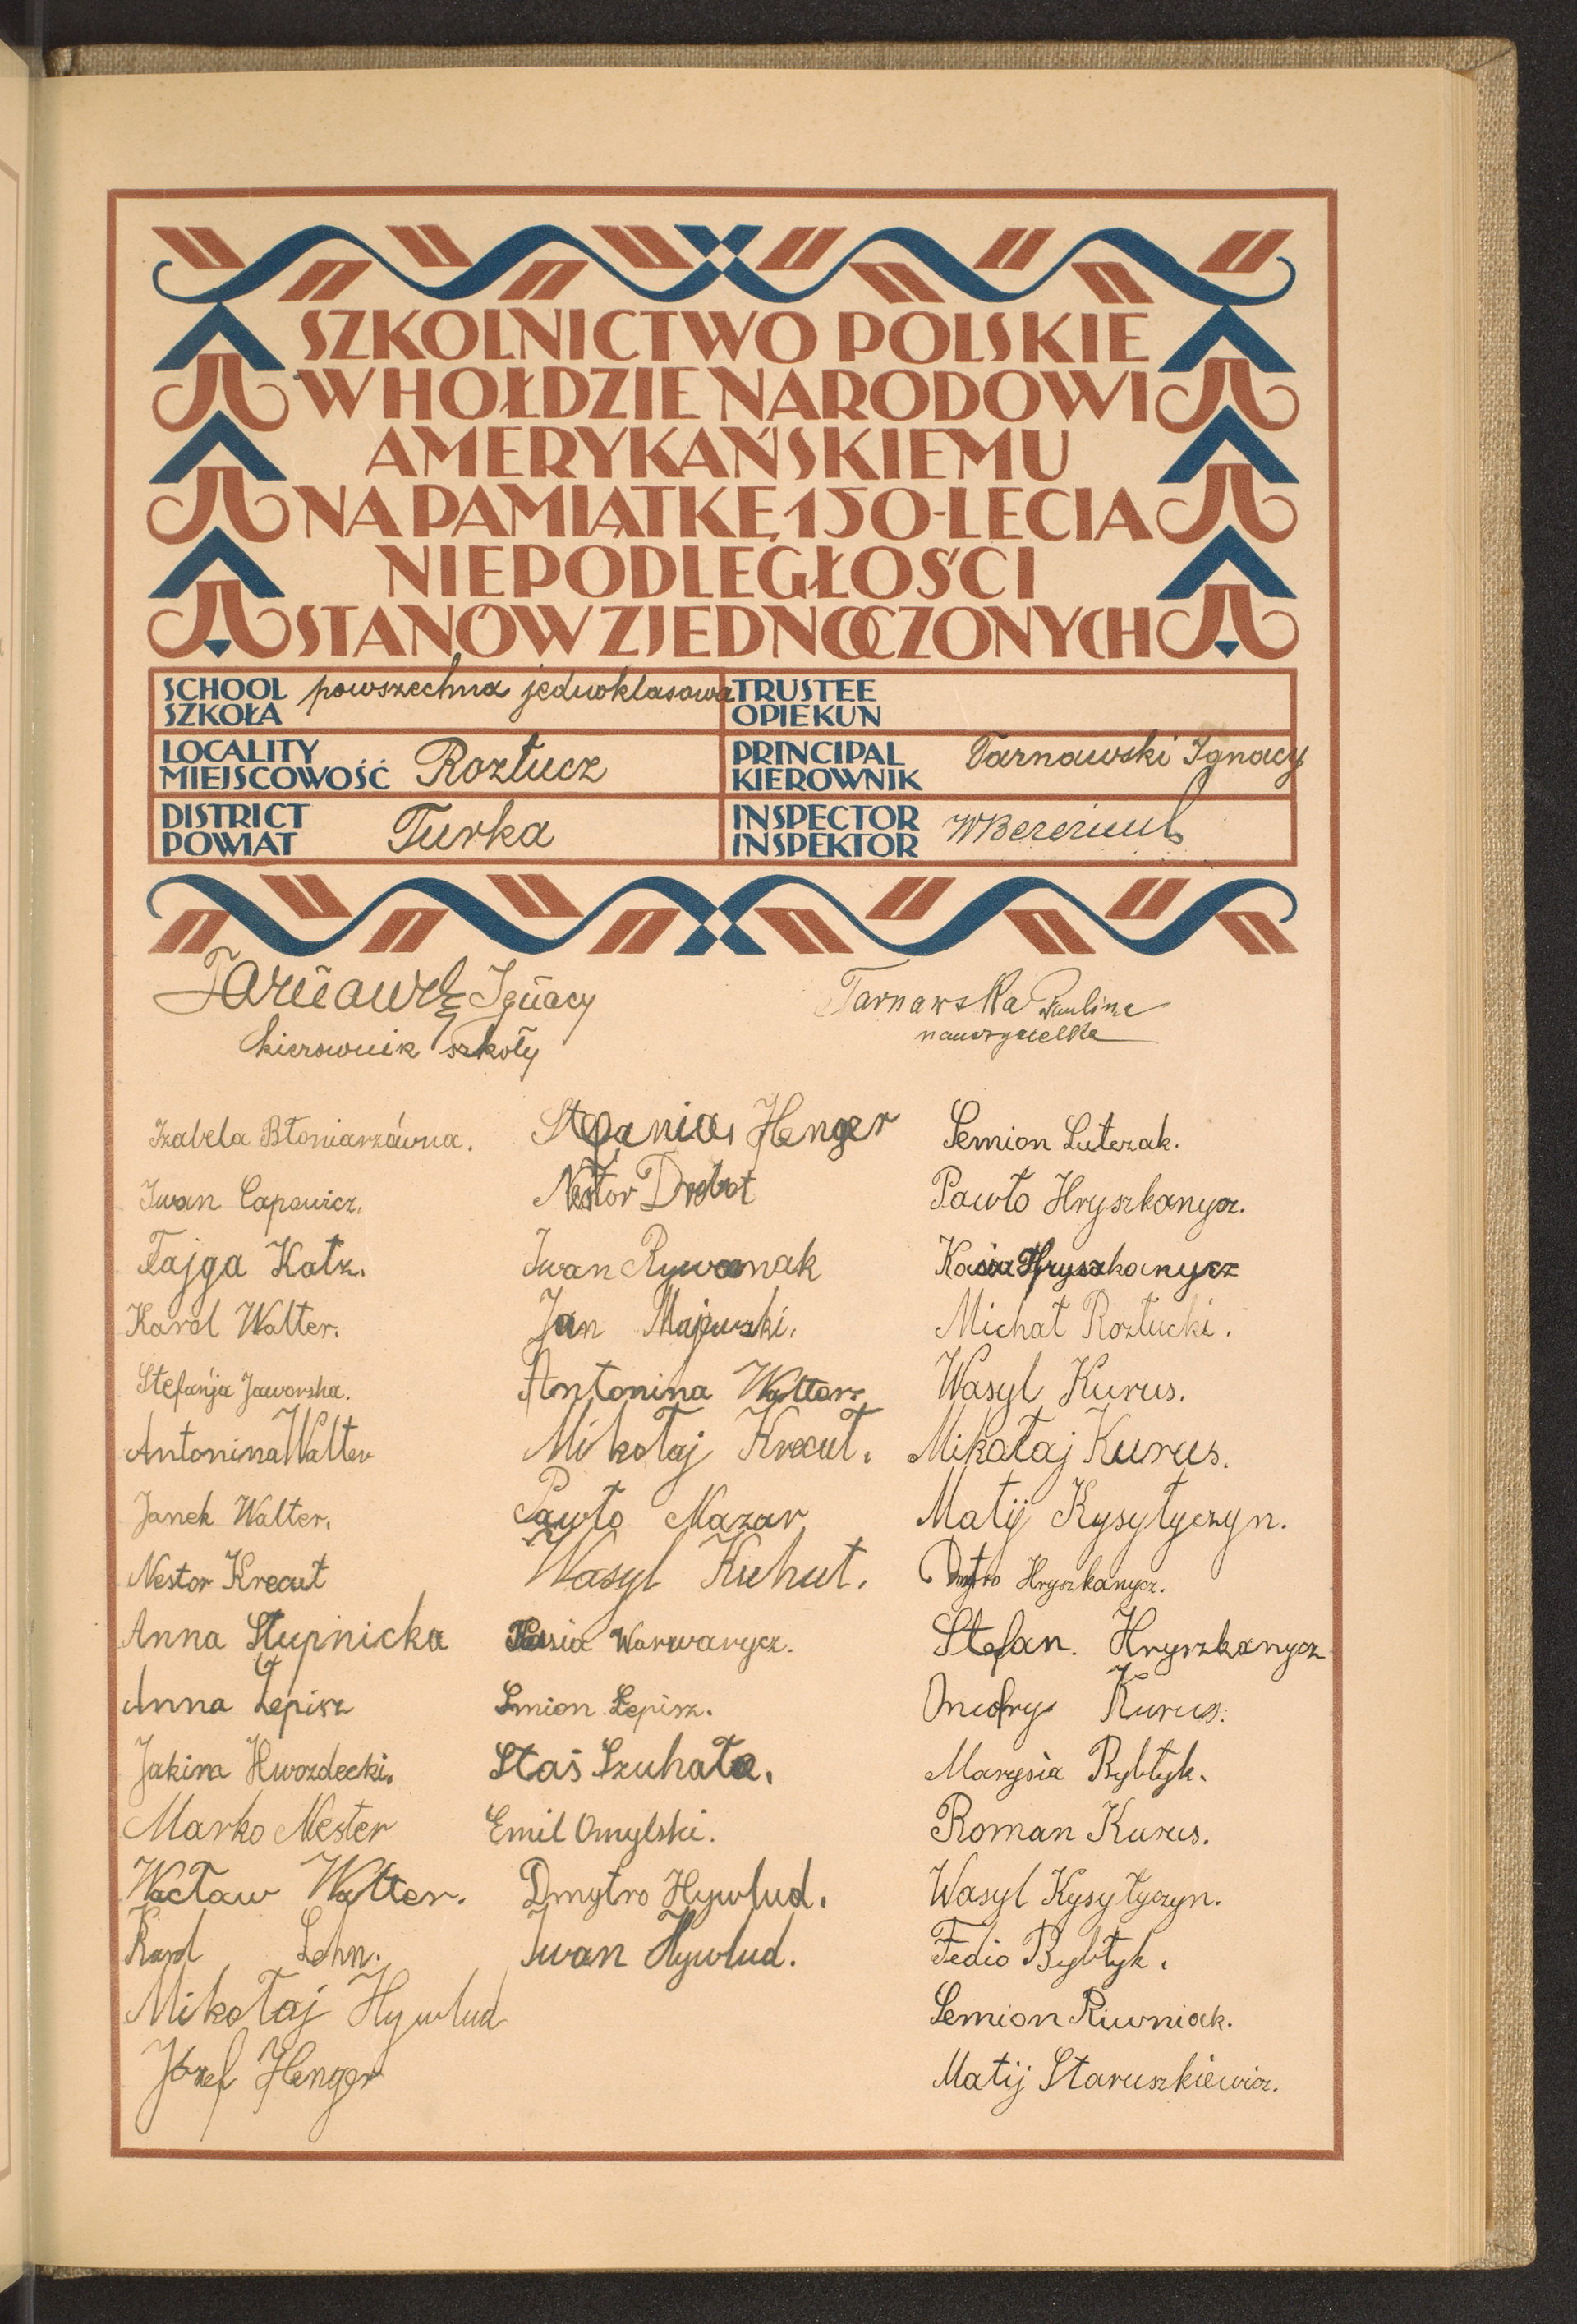 SZKOLNICTWO POLSKIE
W HOŁDZIE NARODOWI
AMERYKAŃSKIEMU
NA PAMIĄTKĘ 150-LECIA
NIEPODLEGŁOŚCI
STANÓW ZJEDNOCZONYCH
SCHOOL
SZKOŁA
powszechna jednoklasowa
TRUSTEE
OPIEKUN
LOCALITY
MIEJSCOWOŚĆ
Rozłucz
PRINCIPAL
KIEROWNIK
Tarnawski Ignacy
DISTRICT
POWIAT
Turka
INSPECTOR
INSPEKTOR
Tarnawski Ignacy
kierownik szkoły
Tarnawska Paulina
nauczycielka
Izabela Błoniarzówna.
Iwan Capowicz.
Fajga Katz.
Karol Walter.
Stefanja Jaworska.
Antonina Walter
Janek Walter.
Nestor Krecut
Anna Słupnicka
Anna Łepisz
Jakim Hwozdecki.
Marko Nester
Wacław Walter.
Karol Lehn.
Mikołaj Hywlud
Józef Henger
Stefania Henger
Nestor Drobot
Iwan Rywanak
Jan Majewski.
Antonina Walter
Mikołaj Krecut.
Pawło Mazar
Wasyl Kuhut.
Kasia Warwarycz.
Smion Łepisz.
Staś Szuhata.
Emil Omylski.
Dmytro Hywlud.
Iwan Hywlud.
Semion Luterak.
Pawło Hryszkanycz.
Kasia Hryszkanycz
Michał Rozłucki.
Wasyl Kurus.
Mikołaj Kurus.
Matij Kysyłyczyn.
Dmytro Hryszkanycz.
Stefan. Hryszkanycz
Onufry Kurus.
Marysia Rybłyk.
Roman Kurus.
Wasyl Kysyłyczyn.
Fedio Rybłyk.
Semion Riwniak.
Matij Staruszkiewicz.